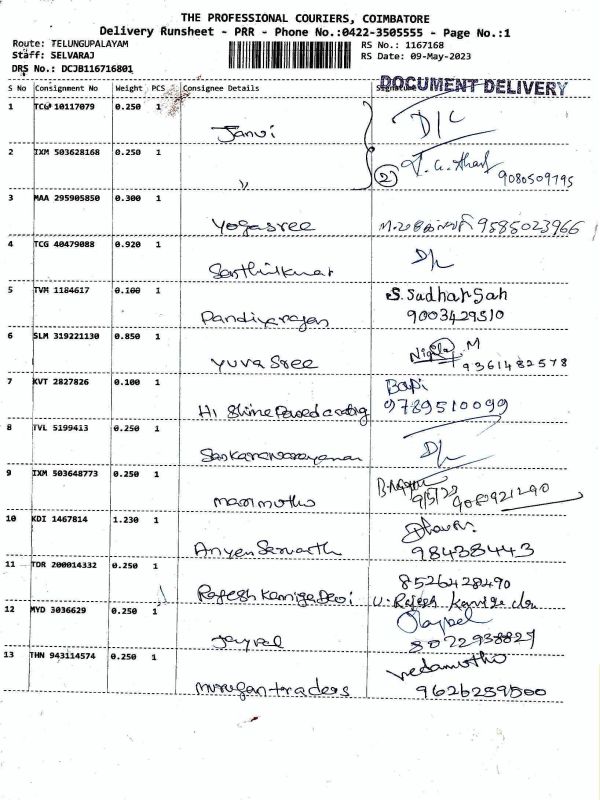 THE PROFESSIONAL COURIERS, COIMBATORE
Delivery Runsheet - PRR - Phone No.:0422-3505555 - Page No.:1
Route: TELUNGUPALAYAM RS No.: 1167168
Staff: SELVARAJ RS Date: 09-May-2023
DRS No.: DCJB116716801
DOCUMENT DELIVERY
S No Consignment No Weight PCS Consignee Details Signature
1 TCG 10117079 0.250 1 Janvi D/L
2 IXM 503628168 0.250 1 〃 2 9080509795
3 MAA 295905850 0.300 1 Yogasree 9585023966
4 TCG 40479088 0.920 1 Sasthikumar D/L
5 TVM 1184617 0.100 1 Pandiyarajan S. Sudharsan
9003429510
6 SLM 319221130 0.850 1 Yuvasree Nigila. M
9361482578
7 KVT 2827826 0.100 1 Hi Shine Babi
9789510099
8 TVL 5199413 0.250 1 Sankaranarayanan D/L
9 IXM 503648773 0.250 1 marimuthu 9/5/23 9080921290
10 KDI 1467814 1.230 1 98438443
11 TDR 200014332 0.250 1 Rajesh Kaniga Devi 8526428490
U. Rajesh Kaniga
12 MYD 3036629 0.250 1 Jaypal Jaypal
8072938829
13 THN 943114574 0.250 1 murugan traders vedamuthu
9626259500